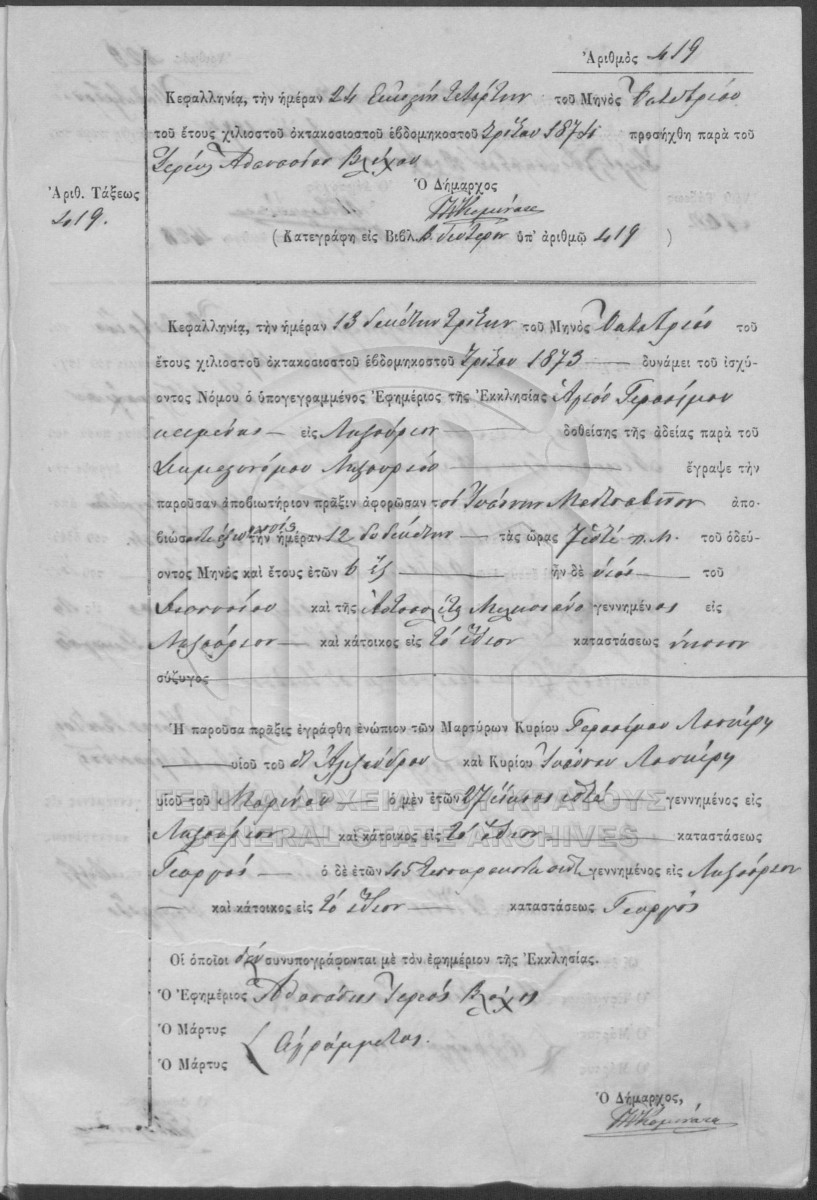 Ἀριθμὸς 419
Κεφαλληνίᾳ, τὴν ἡμέραν 24 εἰκοστὴν τετάρτην τοῦ Μηνὸς Ὀκτωβρίου
τοῦ ἔτους χιλιοστοῦ ὀκτακοσιοστοῦ ἑβδομηκοστοῦ τρίτου 1873 προσήχθη παρὰ τοῦ
Ἱερέως Ἀθανασίου Βλάχου
Ἀριθ. Τάξεως
419.
Ὁ Δήμαρχος
( Κατεγράφη εἰς Βιβλ. Β. δεύτερον ὑπ' ἀριθμῷ 419 )
Κεφαλληνίᾳ, τὴν ἡμέραν 13 δεκάτην τρίτην τοῦ Μηνὸς Ὀκτωβρίου τοῦ
ἔτους χιλιοστοῦ ὀκτακοσιοστοῦ ἑβδομηκοστοῦ τρίτου 1873 δυνάμει τοῦ ἰσχύ-
οντος Νόμου ὁ ὑπογεγραμμένος Ἐφημέριος τῆς Ἐκκλησίας Ἁγίου Γερασίμου
κειμένης εἰς Ληξούριον δοθείσης τῆς ἀδείας παρὰ τοῦ
Ληξουρίου ἔγραψε τὴν
παροῦσαν ἀποβιωτήριον πρᾶξιν ἀφορῶσαν τὸν Ἰωάννην ἀπο-
βιώσαντα τὴν ἡμέραν 12 δωδεκάτην τὰς ὥρας 7 ἑπτὰ π.μ. τοῦ ὁδεύ-
οντος Μηνὸς καὶ ἔτους ἐτῶν 6 ἓξ ἦν δὲ υἱὸς τοῦ
Διονυσίου καὶ τῆς γεννημένος εἰς
Ληξούριον καὶ κάτοικος εἰς τὸ ἴδιον καταστάσεως νήπιον
σύζυγος
Ἡ παροῦσα πρᾶξις ἐγράφθη ἐνώπιον τῶν Μαρτύρων Κυρίου Γερασίμου Λασκάρη
υἱοῦ τοῦ Ἀλεξάνδρου καὶ Κυρίου Ἰωάννου Λασκάρη
υἱοῦ τοῦ Μαρίνου ὁ μὲν ἐτῶν 27 εἴκοσι ἑπτὰ γεννημένος εἰς
ΓΕΝΙΚΑ ΑΡΧΕΙΑ ΤΟΥ ΚΡΑΤΟΥΣ
Ληξούριον καὶ κάτοικος εἰς τὸ ἴδιον καταστάσεως
GENERAL STATE ARCHIVES
Γεωργὸς ὁ δὲ ἐτῶν 45 τεσσαράκοντα πέντε γεννημένος εἰς Ληξούριον
καὶ κάτοικος εἰς τὸ ἴδιον καταστάσεως Γεωργὸς
Οἱ ὁποῖοι δὲν συνυπογράφονται μὲ τὸν ἐφημέριον τῆς Ἐκκλησίας.
Ὁ Ἐφημέριος Ἀθανάσιος Ἱερεὺς Βλάχος
Ὁ Μάρτυς
Ἀγράμματος.
Ὁ Μάρτυς
Ὁ Δήμαρχος,